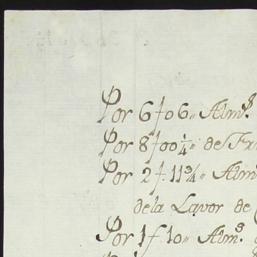 Por 6 f 06 " Alm.s
Por 8 f 00 1/4 " de Tr
Por 2 f 11 3/4 " Alm
de la Lavor de
Por 1 f 10 " Alm.s